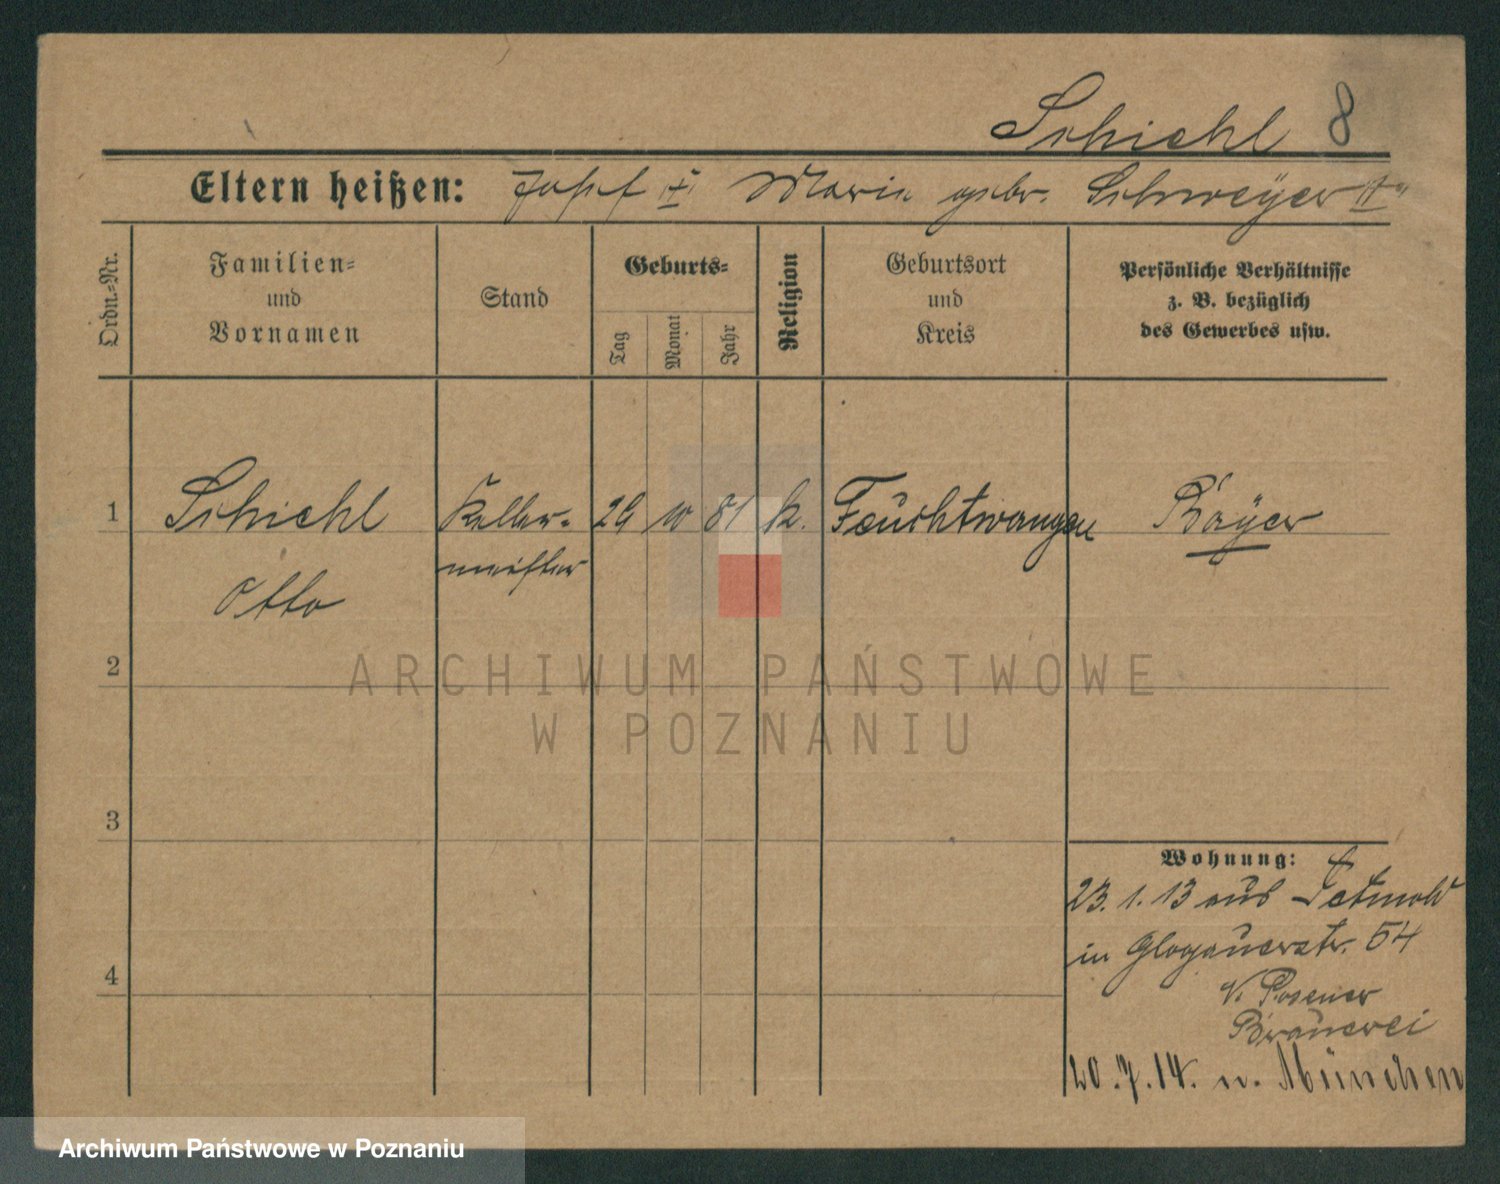 Schiehl 8
Eltern heißen: Josef † Maria gebr. Schweÿer †
Ordn.-Nr.
Familien-
und
Vornamen
Stand
Geburts-
Tag
Monat
Jahr
Religion
Geburtsort
und
Kreis
Persönliche Verhältnisse
z. B. bezüglich
des Gewerbes usw.
1 Schiehl Keller- 29 10 81 k. Feuchtwangen Bayer
meister
Otto
2
ARCHIWUM PAŃSTWOWE
W POZNANIU
3
Wohnung:
23. 1. 13 aus Detmold
in Glogauerstr. 54
Posener
4
Brauerei
20.7.14. n. München
Archiwum Państwowe w Poznaniu